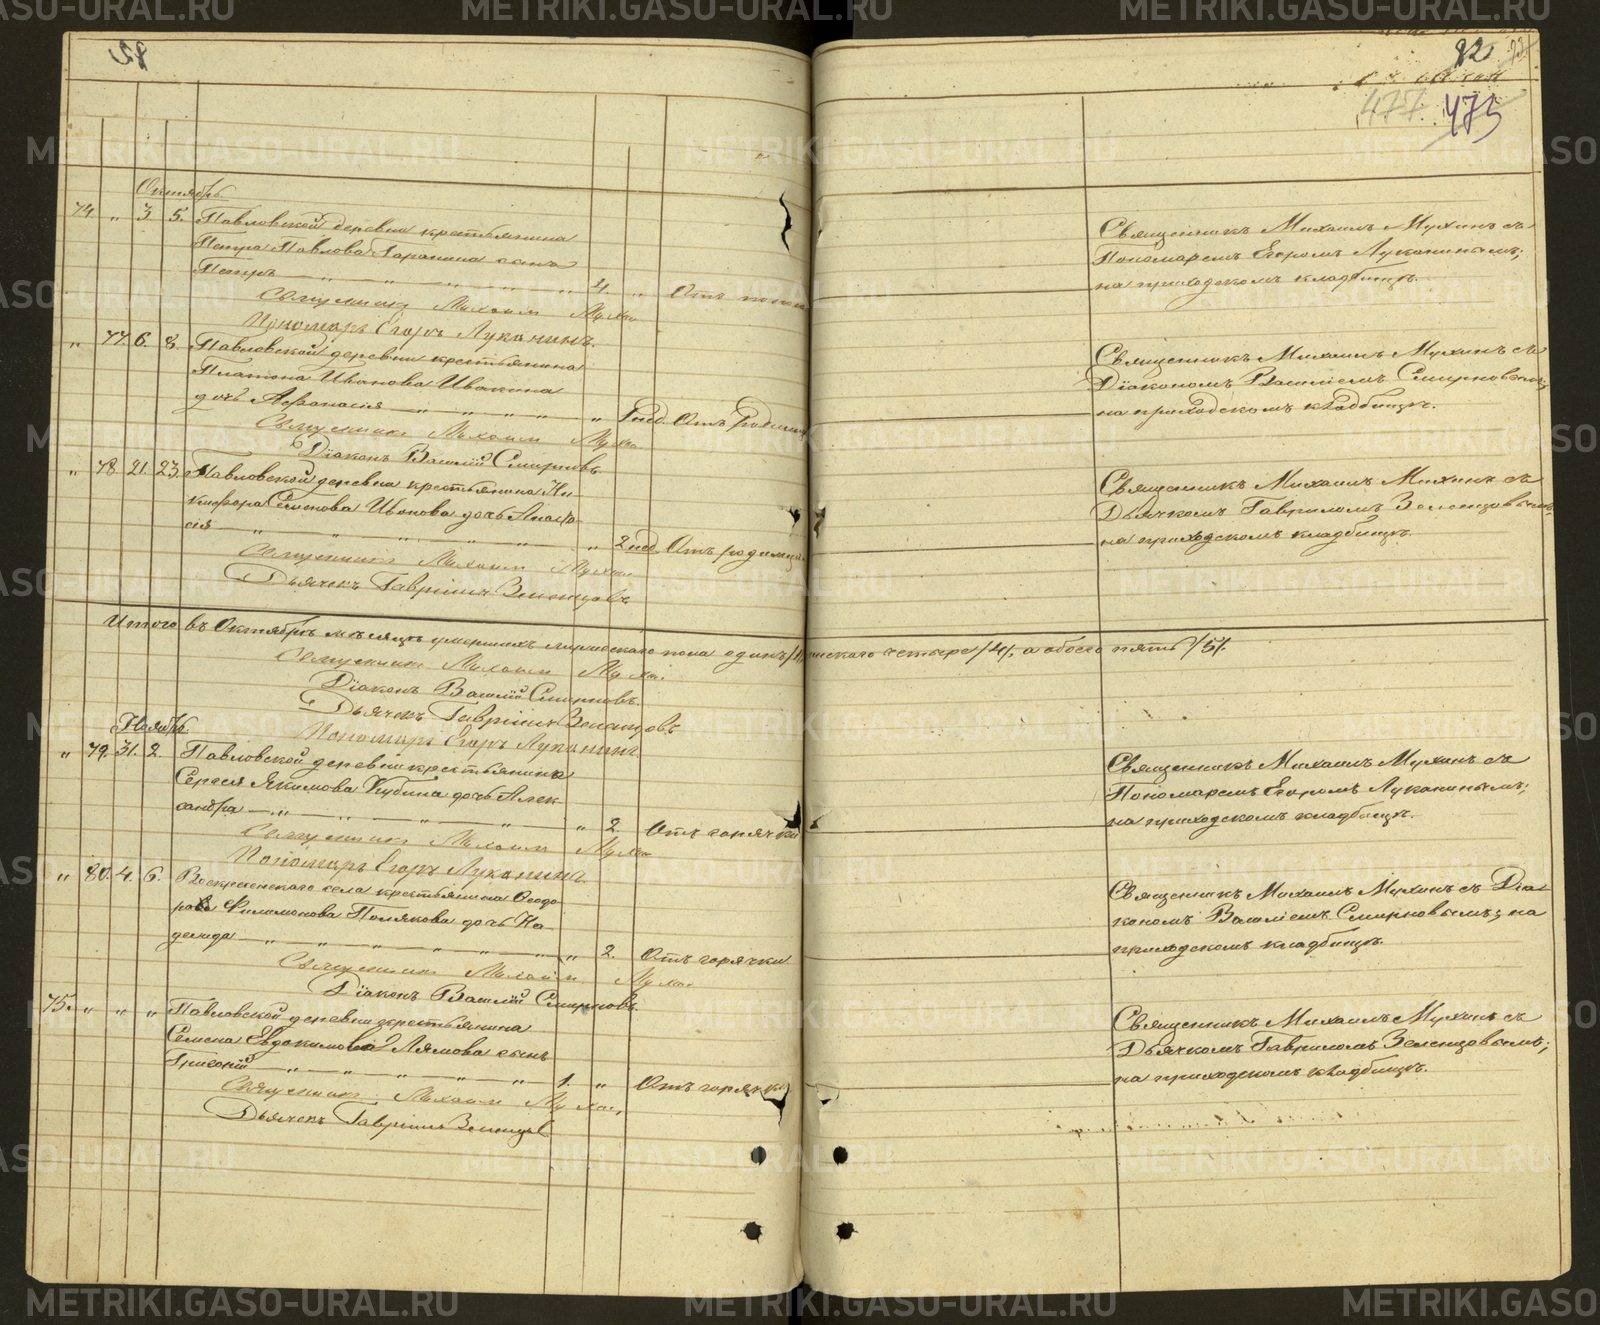 82
477. 475
Октябрь
74. „ 3 5. Павловской деревни крестьянина
Петра Павлова сынъ
Петръ „ „ „ „ „ 4. „ Отъ поноса
Священникъ Михаилъ Мухинъ
Пономарь Егоръ Луканинъ.
Священникъ Михаилъ Мухинъ съ
Пономаремъ Егоромъ Луканинымъ;
на приходскомъ кладбищѣ.
„ 77. 6. 8. Павловской деревни крестьянина
Платона Иванова Ивакина
дочь Аѳанасія „ „ „ „ „ 1 нед. Отъ родимца
Священникъ Михаилъ Мухинъ
Діаконъ Василій Смирновъ
Священникъ Михаилъ Мухинъ съ
Діакономъ Василіемъ Смирновымъ;
на приходскомъ кладбищѣ.
„ 78. 21. 23. Павловской деревни крестьянина Ни-
кифора Семенова дочь Анаста-
сія „ „ „ „ „ „ 2 нед. Отъ родимца
Священникъ Михаилъ Мухинъ
Дьячекъ Гавріилъ Зеленцовъ
Священникъ Михаилъ Мухинъ съ
Дьячкомъ Гавриломъ Зеленцовымъ;
на приходскомъ кладбищѣ.
Итого въ Октябрѣ мѣсяцѣ умершихъ мужескаго пола одинъ /1/, женскаго четыре /4/, а обоего пять /5/.
Священникъ Михаилъ Мухинъ
Діаконъ Василій Смирновъ.
Дьячекъ Гавріилъ Зеленцовъ
Пономарь Егоръ Луканинъ
Ноябрь
„ 79. 31. 2. Павловской деревни крестьянина
Сергея Якимова Кубина дочь Алек-
сандра „ „ „ „ „ 2. Отъ горячки
Священникъ Михаилъ Мухинъ
Пономарь Егоръ Луканинъ
Священникъ Михаилъ Мухинъ съ
Пономаремъ Егоромъ Луканинымъ;
на приходскомъ кладбищѣ.
„ 80. 4. 6. Воскресенскаго села крестьянина Ѳедо-
ра Филимонова Полякова дочь На-
дежда „ „ „ „ „ „ 2. Отъ горячки
Священникъ Михаилъ Мухинъ
Діаконъ Василій Смирновъ.
Священникъ Михаилъ Мухинъ съ Діа-
кономъ Василіемъ Смирновымъ; на
приходскомъ кладбищѣ.
75. „ „ „ Павловской деревни крестьянина
Семена Евдокимова Лямова сынъ
Григорій „ „ „ „ „ 1. „ Отъ горячки
Священникъ Михаилъ Мухинъ
Дьячекъ Гавріилъ Зеленцовъ
Священникъ Михаилъ Мухинъ съ
Дьячкомъ Гавриломъ Зеленцовымъ;
на приходскомъ кладбищѣ.
METRIKI.GASO-URAL.RU